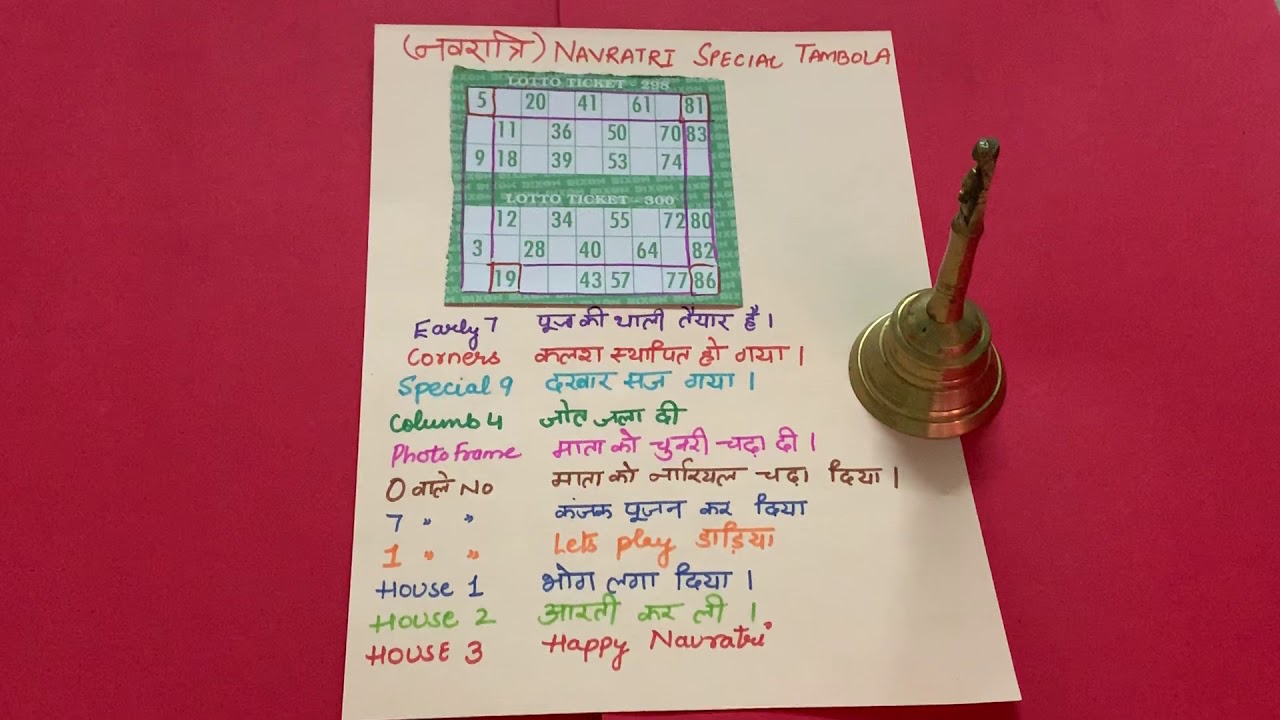 (नवरात्रि) NAVRATRI SPECIAL TAMBOLA
LOTTO TICKET - 298
5 20 41 61 81
11 36 50 70 83
9 18 39 53 74
DIXON DIXON DIXON DIXON DIXON
LOTTO TICKET - 300
12 34 55 72 80
3 28 40 64 82
19 43 57 77 86
Early 7 पूजा की थाली तैयार है।
Corners कलश स्थापित हो गया।
Special 9 दरबार सज गया।
Columb 4 जोत जला दी
Photo frame माता को चुनरी चढ़ा दी।
0 वाले No माता को नारियल चढ़ा दिया।
7 " " कंजक पूजन कर दिया
1 " " Lets play डाड़िया
House 1 भोग लगा दिया।
House 2 आरती कर ली।
HOUSE 3 Happy Navratri